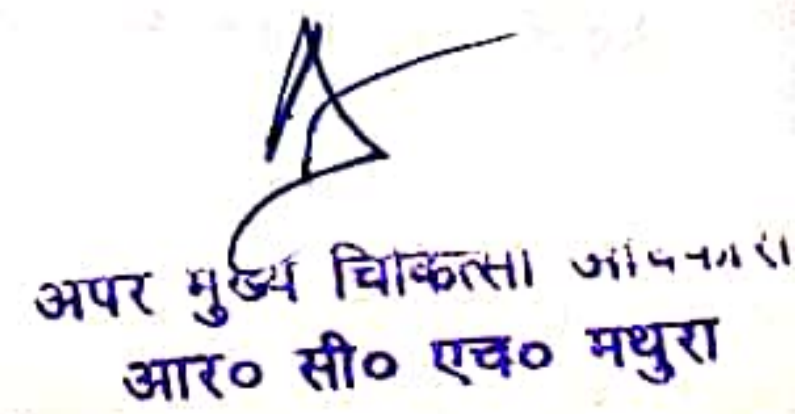 अपर मुख्य चिकित्सा अधिकारी
आर० सी० एच० मथुरा